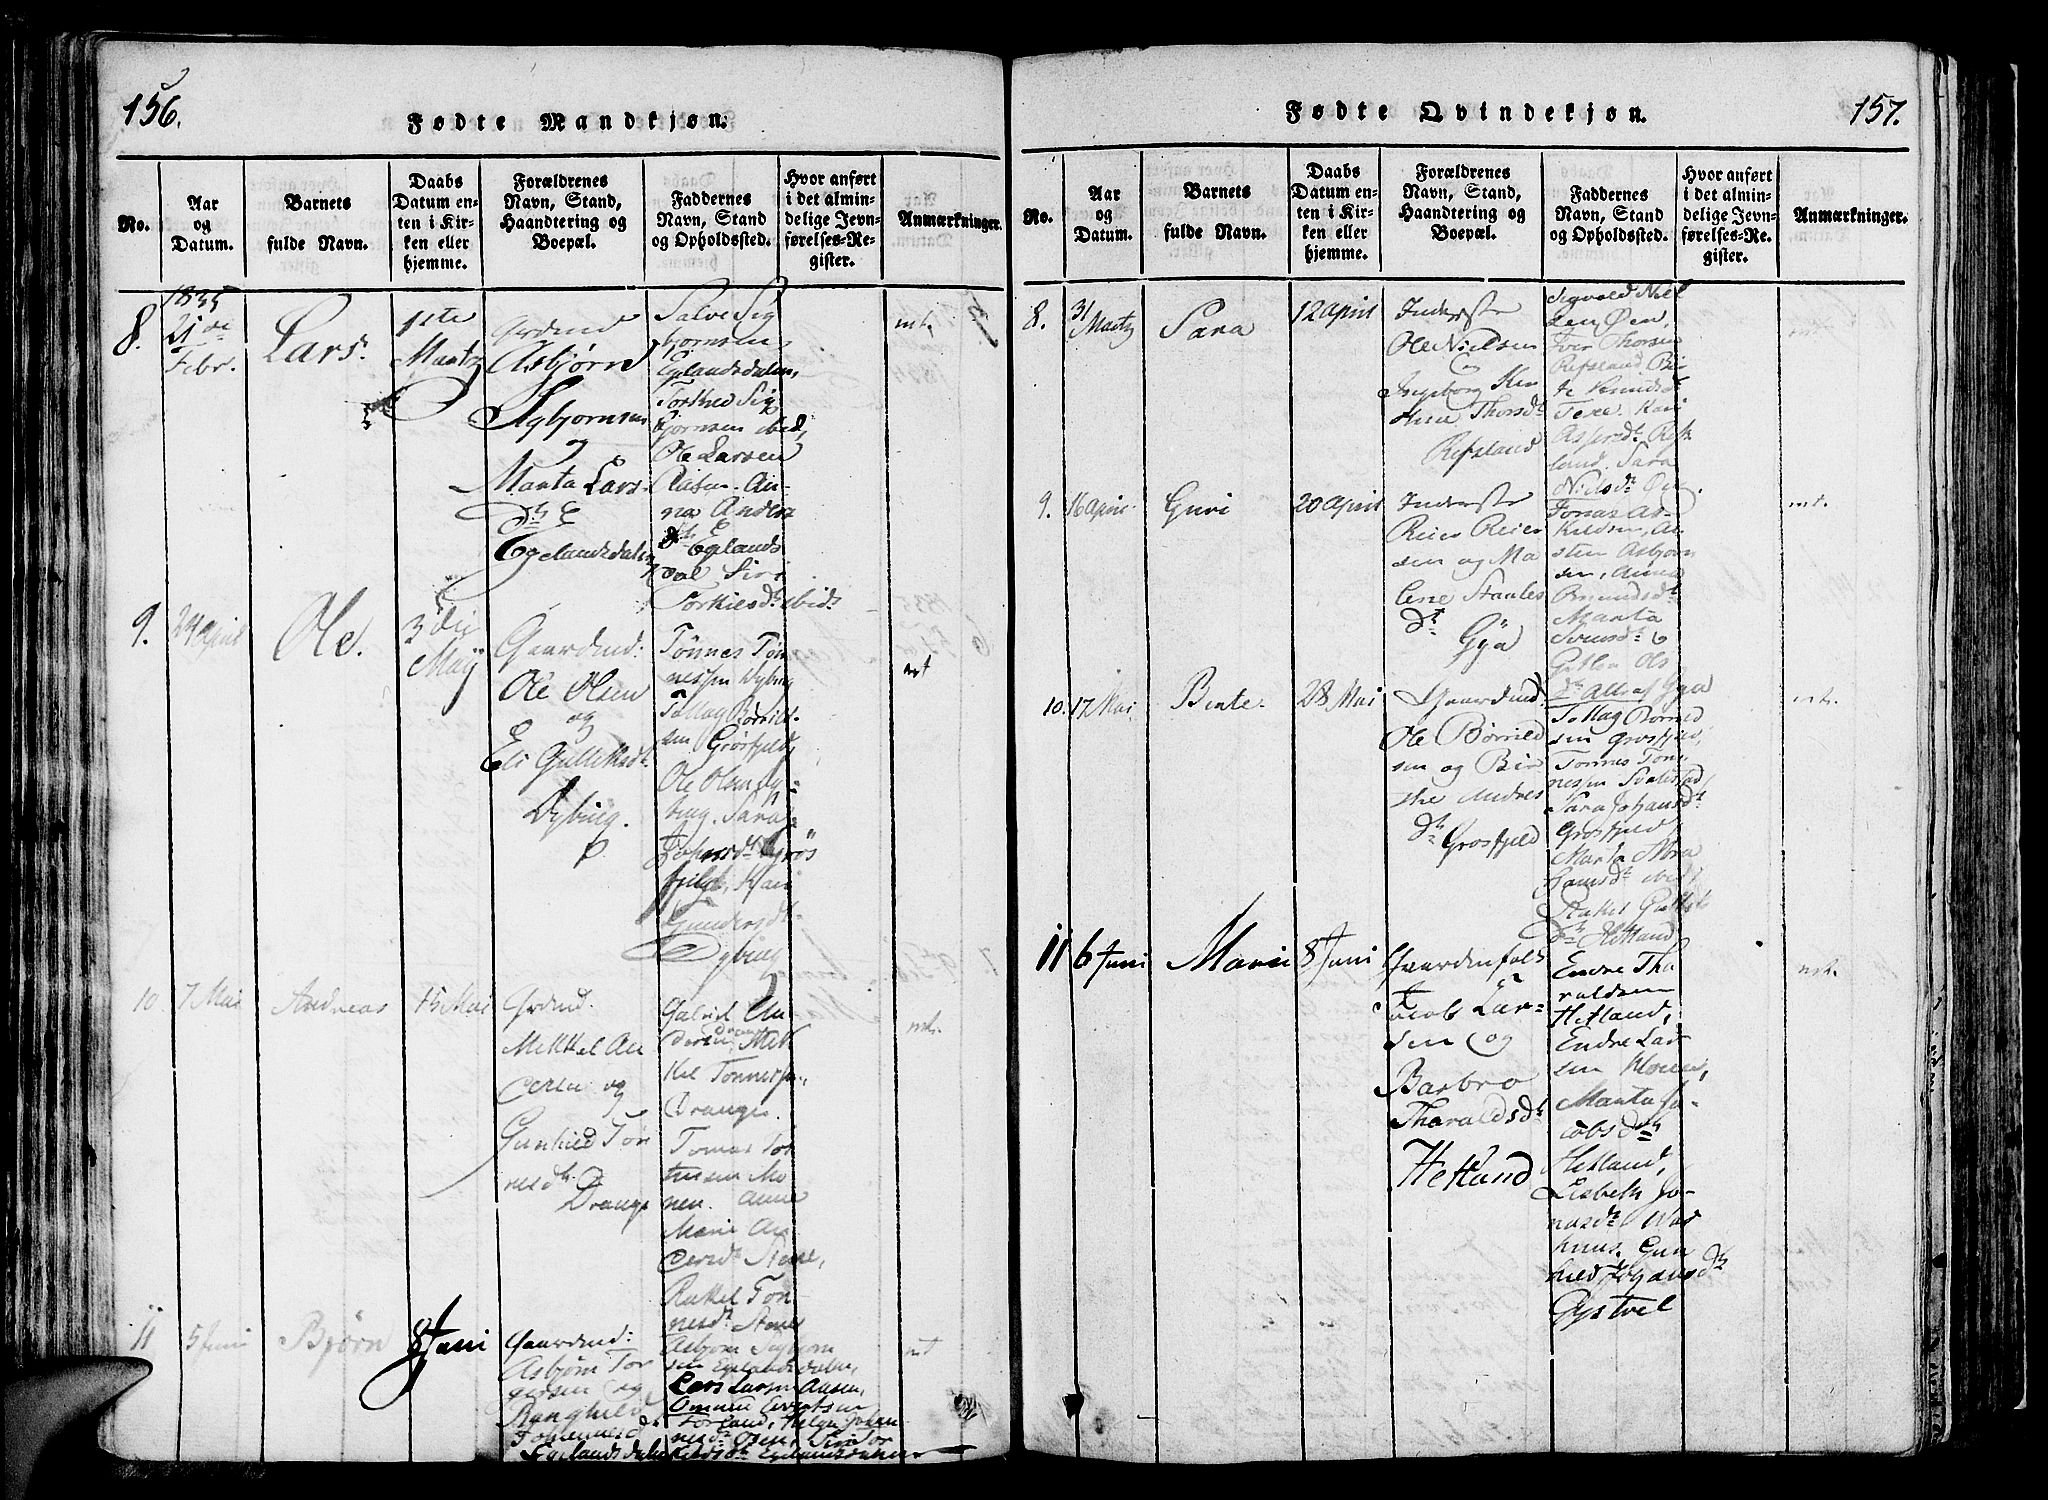 156.
Fødte Mandkjøn.
No.
Aar
og
Datum.
Barnets
fulde Navn.
Daabs
Datum en-
ten i Kir-
ken eller
hjemme.
Forældrenes
Navn, Stand,
Haandtering og
Boepæl.
Faddernes
Navn, Stand
og Opholdssted.
Hvor anført
i det almin-
delige Jevn-
førelses-Re-
gister.
Anmærkninger.
8.
1835
21de
Febr.
Lars.
1ste
Martz
Grdmd
Asbjørn
Sigbjørnsen
og
Marta Lars-
dtr
Egelandsdalen
Salve Sig
bjørnsen,
Egelandsdalen,
Torkild Sig
bjørnsen ibid,
Ole Larsen
An-
na Anders
dtr Eglands
dal Siri
Torkilsdtr ibid
mt.
9.
24 April
Ole.
3die
Maij
Gaardmd:
Ole Olsen
og
Eli Gulleksdtr
Dybing.
Tønnes Tøn
nessen Dybing
Tollag Børrild-
sen Grøsfjeld,
Ole Olsen Dy=
bing. Sara
Johnsdtr Grøs
fjeld, Kari
Gundersdtr
Dybing
mt
10.
7 Mai
Andreas
15 Mai
Grdmd.
Mikkel An
dersen og
Gunhild Tøn
nesdtr
Drange
Gabriel An
dersen Drange Mik
kel Tønnessen,
Drange.
Tomas Tor
kensen Mo
nen. Anne
Marie An
dersdtr Stene,
Rakel Tøn-
nesdtr Stene
mt.
11
5 Juni
Bjørn
8 Juni
Gaardmd:
Asbjørn Tor
gersen og
Ranghild
Johannesd
dtr
Egelandsdalen
Asbjørn Sigbjørn
sen Egelandsdalen,
Lars Larsen Aasen,
Ommund Evertsen
Torland, Helge Johan-
nesdtr Osen, Siri Tor
kildsdtr Egelandsdalen
mt
157.
Fødte Qvindekjøn.
No.
Aar
og
Datum.
Barnets
fulde Navn.
Daabs
Datum en-
ten i Kir-
ken eller
hjemme.
Forældrenes
Navn, Stand,
Haandtering og
Boepæl.
Faddernes
Navn, Stand
og Opholdssted.
Hvor anført
i det almin-
delige Jevn-
førelses-Re-
gister.
Anmærkninger.
8.
31
Martz
Sara
12 April
Inderste
Ole Nielsen
og
Ingeborg Ka
thrine Thorsdtr
Refsland
Sigvald Niel
sen Øen,
Iver Thorsen
Refsland Bir
te Knudsdtr
Teke. Kari
Aspersdtr Refs
land. Sara
Nielsdtr Øen.
mt.
9.
16 April
Guri
20 April
Inderste
Reier Reier
sen og Ma
lene Staales
dtr
Gya
Jonas As-
kildsen, Au
sten Asbjørn
sen, Anna
Omundsdtr
Marta
Svensdtr
Gitlou Ols
dtr Alle af Gya
mt.
10.
17 Mai.
Bente.
28 Mai
Gaardmd:
Ole Børrild
sen og Bir
the Andres
dtr
Grosfjeld
Tollag Børrild
sen Grosfjeld,
Tønnes Tøn
nessen Svalestad,
Sara Johansdtr
Grosfjeld,
Marta Abra
hamsdtr ibid,
Rakel Gulleks
dtr Hetland
mt.
11
6 Juni
Maria
8 Juni
Gaardmfolk
Jacob Lar-
sen og
Barbro
Tharaldsdtr
Hetland
Endre Tha
raldsen
Hetland,
Endre Lar
sen Monen,
Marta Ja-
cobsdtr
Hetland,
Lisbeth Jo-
nasdtr Wat
hnus. Gun
hild Johansdtr
Gystvel
mt.